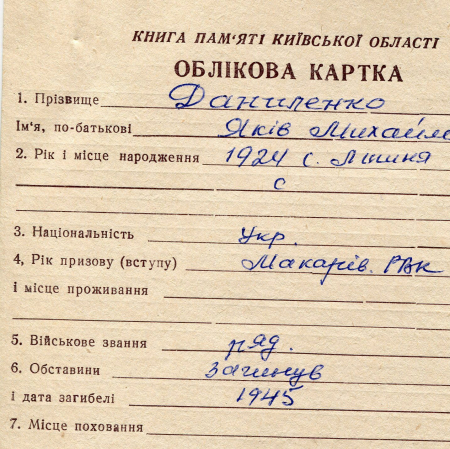 КНИГА ПАМ'ЯТІ КИЇВСЬКОЇ ОБЛАСТІ
ОБЛІКОВА КАРТКА
1. Прізвище Даниленко
Ім'я, по-батькові Яків Михайло
2. Рік і місце народження 1924 с. Липиня
с
3. Національність укр.
4, Рік призову (вступу) Макарів. РВК
і місце проживання
5. Військове звання ряд.
6. Обставини загинув
і дата загибелі 1945
7. Місце поховання